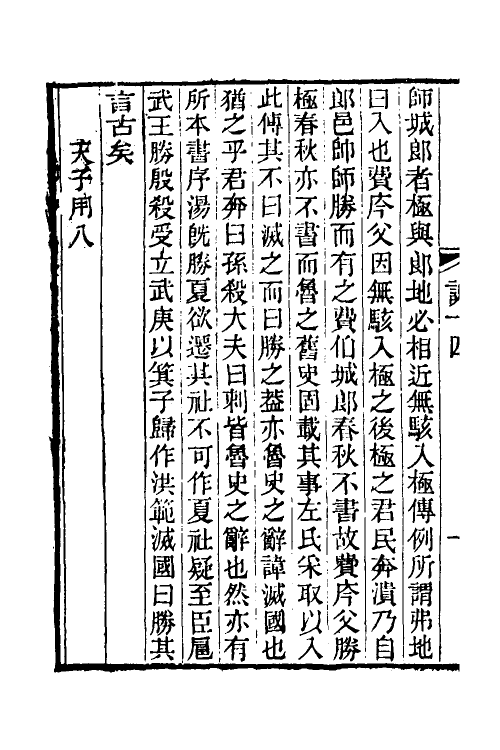 師城郎者極與郎地必相近無駭入極傳例所謂弗地
曰入也費庈父因無駭入極之後極之君民奔潰乃自
郎邑帥師勝而有之費伯城郎春秋不書故費庈父勝
極春秋亦不書而魯之舊史固載其事左氏采取以入
此傳其不曰滅之而曰勝之葢亦魯史之辭諱滅國也
猶之乎君奔曰孫殺大夫曰刺皆魯史之辭也然亦有
所本書序湯旣勝夏欲遷其社不可作夏社疑至臣扈
武王勝殷殺受立武庚以箕子歸作洪範滅國曰勝其
言古矣
天子用八
一